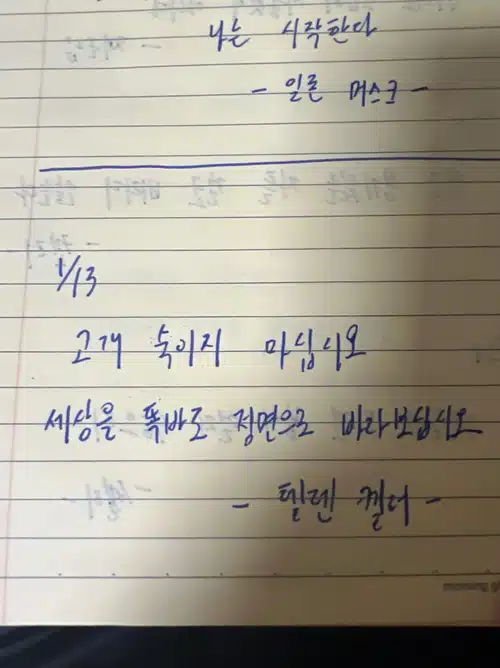 나는 시작한다
- 일론 머스크 -
1/13
고개 숙이지 마십시오
세상을 똑바로 정면으로 바라보십시오
- 헬렌 켈러 -